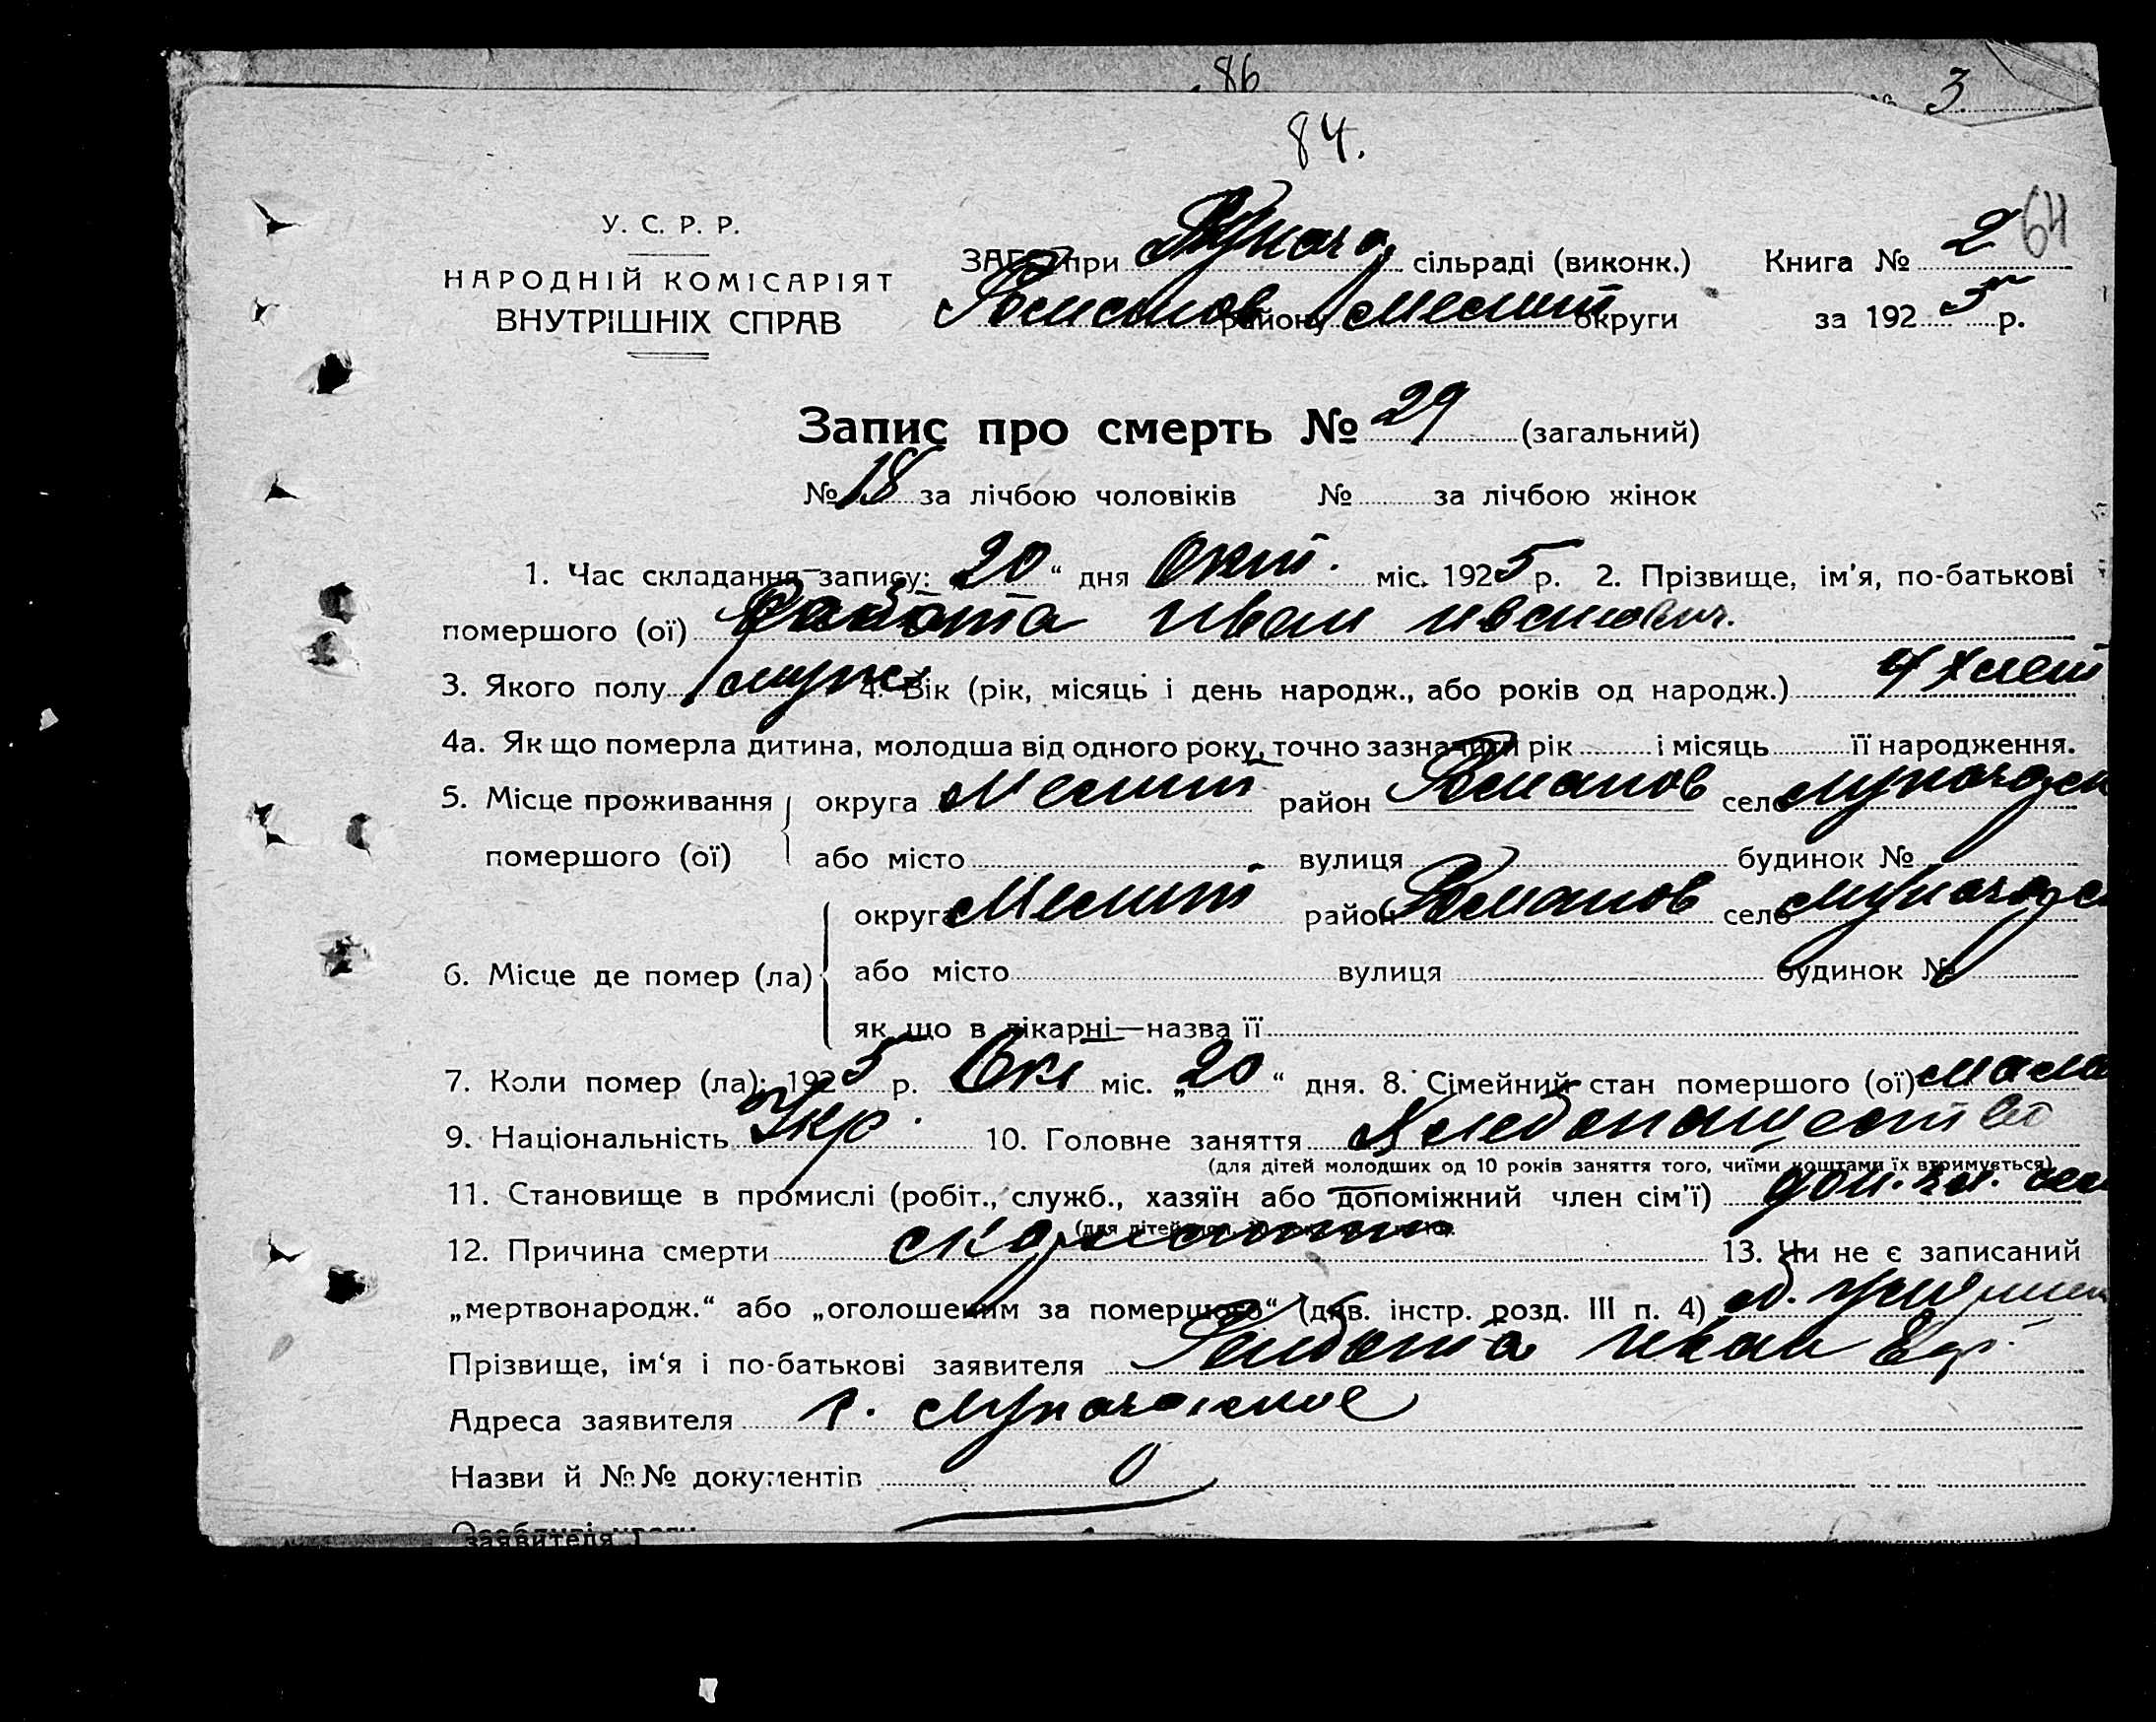 86
3.
84.
64
У. С. Р. Р.
НАРОДНІЙ КОМІСАРІЯТ
ВНУТРІШНІХ СПРАВ
ЗАГС при сільраді (виконк.) Книга № 2
Романов району Мелит округи за 1925 р.
Запис про смерть № 29 (загальний)
№ 18 за лічбою чоловіків № за лічбою жінок
1. Час складання запису: „20“ дня Окт. міс. 1925 р. 2. Прізвище, ім'я, по-батькові
помершого (ої) Иван Иванович.
3. Якого полу муж 4. Вік (рік, місяць і день народж., або років од народж.) 4х лет
4а. Як що померла дитина, молодша від одного року, точно зазначити рік і місяць її народження.
5. Місце проживання округа Мелит район Романов село
помершого (ої) або місто вулиця будинок №
округа Мелит район Романов село
6. Місце де помер (ла) або місто вулиця будинок №
як що в лікарні—назва її
7. Коли помер (ла): 1925 р. Окт міс. „20“ дня. 8. Сімейний стан помершого (ої)
9. Національність Укр. 10. Головне заняття Хлебопашество
(для дітей молодших од 10 років заняття того, чиїми коштами їх втримується)
11. Становище в промислі (робіт., служб., хазяїн або допоміжний член сім'ї) доп. чл. сем
12. Причина смерти 13. Чи не є записаний
„мертвонародж.“ або „оголошеним за помершого“ (див. інстр. розд. III п. 4)
Прізвище, ім'я і по-батькові заявителя Иван
Адреса заявителя с.
Назви й №№ документів
Особливі уваги
заявителя